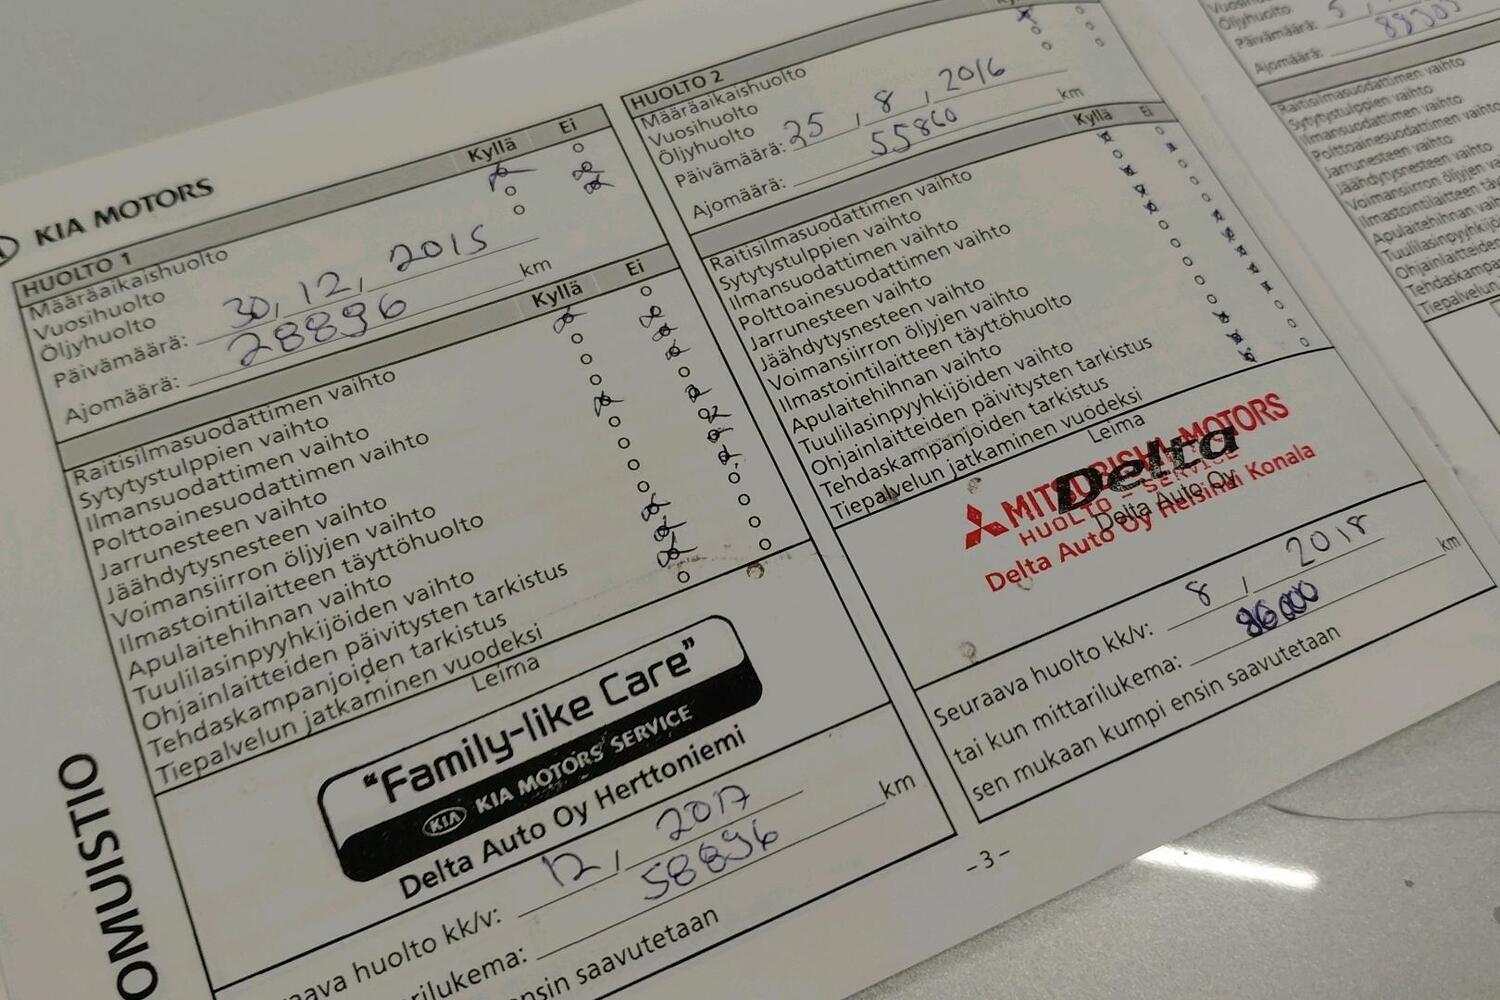 KIA MOTORS
HUOLTO 1
Kyllä Ei
Määräaikaishuolto
Vuosihuolto
Öljyhuolto
Päivämäärä: 30, 12, 2015
Ajomäärä: 28896 km
Kyllä Ei
Raitisilmasuodattimen vaihto
Sytytystulppien vaihto
Ilmansuodattimen vaihto
Polttoainesuodattimen vaihto
Jarrunesteen vaihto
Jäähdytysnesteen vaihto
Voimansiirron öljyjen vaihto
Ilmastointilaitteen täyttöhuolto
Apulaitehihnan vaihto
Tuulilasinpyyhkijöiden vaihto
Ohjainlaitteiden päivitysten tarkistus
Tehdaskampanjoiden tarkistus
Tiepalvelun jatkaminen vuodeksi
Leima
"Family-like Care"
KIA KIA MOTORS SERVICE
Delta Auto Oy Herttoniemi
huolto kk/v: 12, 2017
58896 km
saavutetaan
HUOLTO 2
Määräaikaishuolto
Vuosihuolto
Öljyhuolto
Päivämäärä: 25, 8, 2016
Ajomäärä: 55860 km
Kyllä Ei
Raitisilmasuodattimen vaihto
Sytytystulppien vaihto
Ilmansuodattimen vaihto
Polttoainesuodattimen vaihto
Jarrunesteen vaihto
Jäähdytysnesteen vaihto
Voimansiirron öljyjen vaihto
Ilmastointilaitteen täyttöhuolto
Apulaitehihnan vaihto
Tuulilasinpyyhkijöiden vaihto
Ohjainlaitteiden päivitysten tarkistus
Tehdaskampanjoiden tarkistus
Tiepalvelun jatkaminen vuodeksi
Leima
MITSUBISHI MOTORS
Delta
HUOLTO - SERVICE
Delta Auto Oy
Delta Auto Oy Helsinki Konala
Seuraava huolto kk/v: 8, 2018
tai kun mittarilukema: 86000 km
sen mukaan kumpi ensin saavutetaan
- 3 -
Öljyhuolto
Päivämäärä: 5,
Ajomäärä:
Raitisilmasuodattimen vaihto
Sytytystulppien vaihto
Ilmansuodattimen vaihto
Polttoainesuodattimen vaihto
Jarrunesteen vaihto
Jäähdytysnesteen vaihto
Voimansiirron öljyjen
Ilmastointilaitteen
Apulaitehihnan